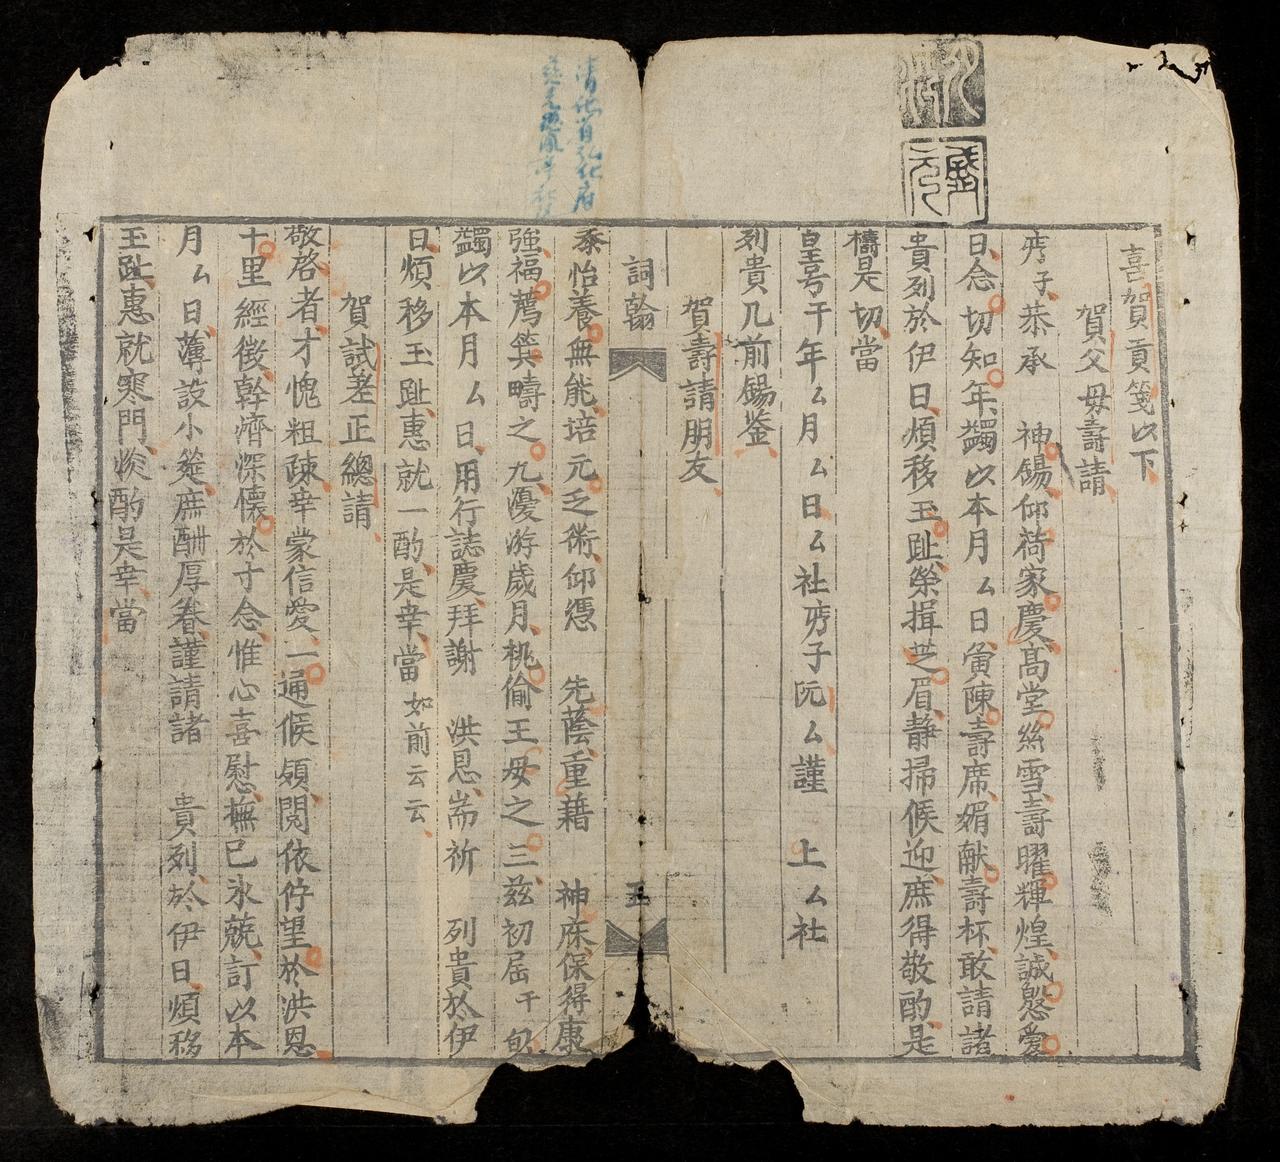 喜賀貢箋以下
賀父母壽請
恭承 神錫仰荷家慶高堂絲雪壽曜輝煌誠慇愛
日念切知年蠲以本月厶日寅陳壽席媚献壽杯敢請諸
貴列於伊日煩移玉趾榮揖芝眉靜掃候迎庶得敬酌是
禱是切當
皇号干年厶月厶日厶社 子阮厶謹 上厶社
列貴几前錫鉴
賀壽請朋友
詞翰
五
忝怡養無能培元乏術仰憑 先蔭重藉 神庥保得康
強福膺箕疇之九優游歲月桃偷王母之三兹初屆干旬
蠲以本月厶日用行誌慶拜謝 洪恩耑祈 列貴於伊
日煩移玉趾惠就一酌是幸當如前云云
賀試差正總請
敬啓者才愧粗疎幸蒙信愛一通候 閲依佇望於洪恩
十里經徴幹濟深懐於寸念惟心喜慰撫己氷兢訂以本
月厶日薄設小筵庶酬厚眷謹請諸 貴列於伊日煩移
玉趾惠就寒門 酌是幸當
清化省弘化府